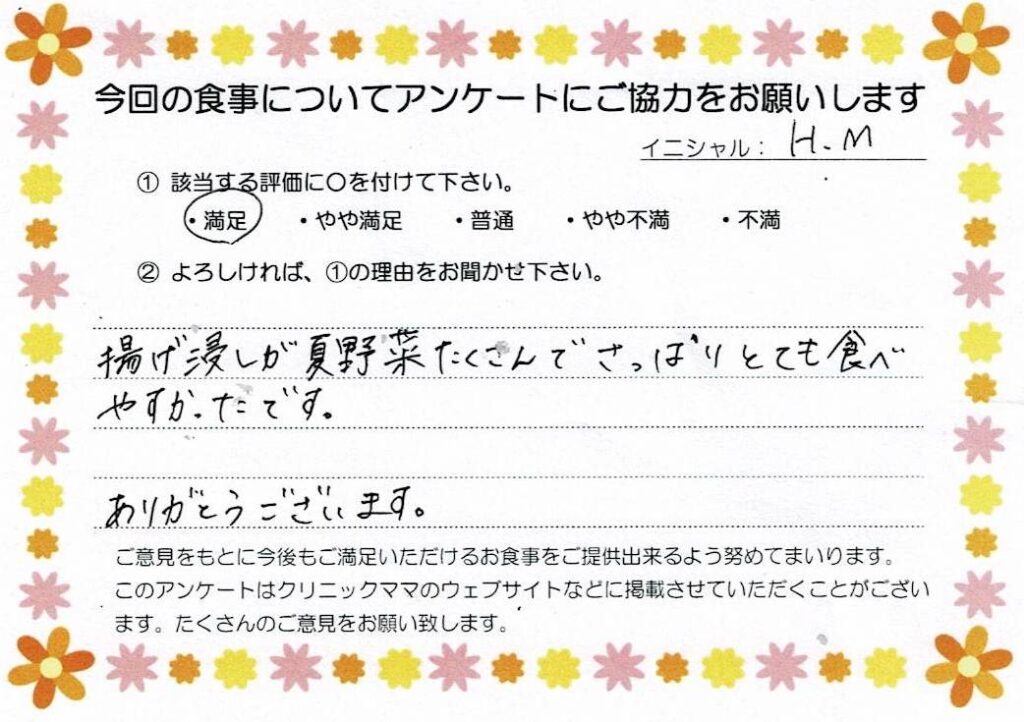 今回の食事についてアンケートにご協力をお願いします
イニシャル： H.M
① 該当する評価に〇を付けて下さい。
・満足 ・やや満足 ・普通 ・やや不満 ・不満
② よろしければ、①の理由をお聞かせ下さい。
揚げ浸しが夏野菜たくさんでさっぱりとても食べ
やすかったです。
ありがとうございます。
ご意見をもとに今後もご満足いただけるお食事をご提供出来るよう努めてまいります。
このアンケートはクリニックママのウェブサイトなどに掲載させていただくことがござい
ます。たくさんのご意見をお願い致します。